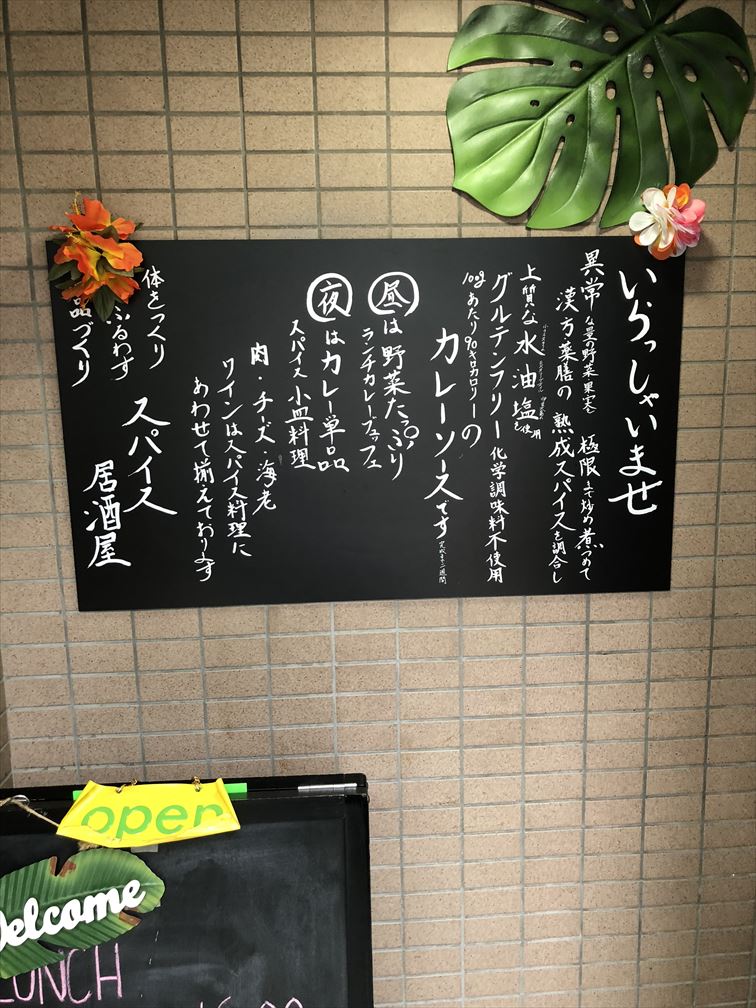 いらっしゃいませ
異常な量の野菜果実を 極限まで炒め煮つめて
漢方薬膳の 熟成スパイスを調合し
上質な水油塩を使用
グルテンフリー 化学調味料不使用
100gあたり90キロカロリーの
カレーソースです 完成まで二週間
昼は野菜たっぷり
ランチカレーブッフェ
夜はカレー単品
スパイス小皿料理
肉・チーズ・海老
ワインはスパイス料理に
あわせて揃えております
体をつくり
ふるわす
品づくり
スパイス
居酒屋
open
Welcome
LUNCH